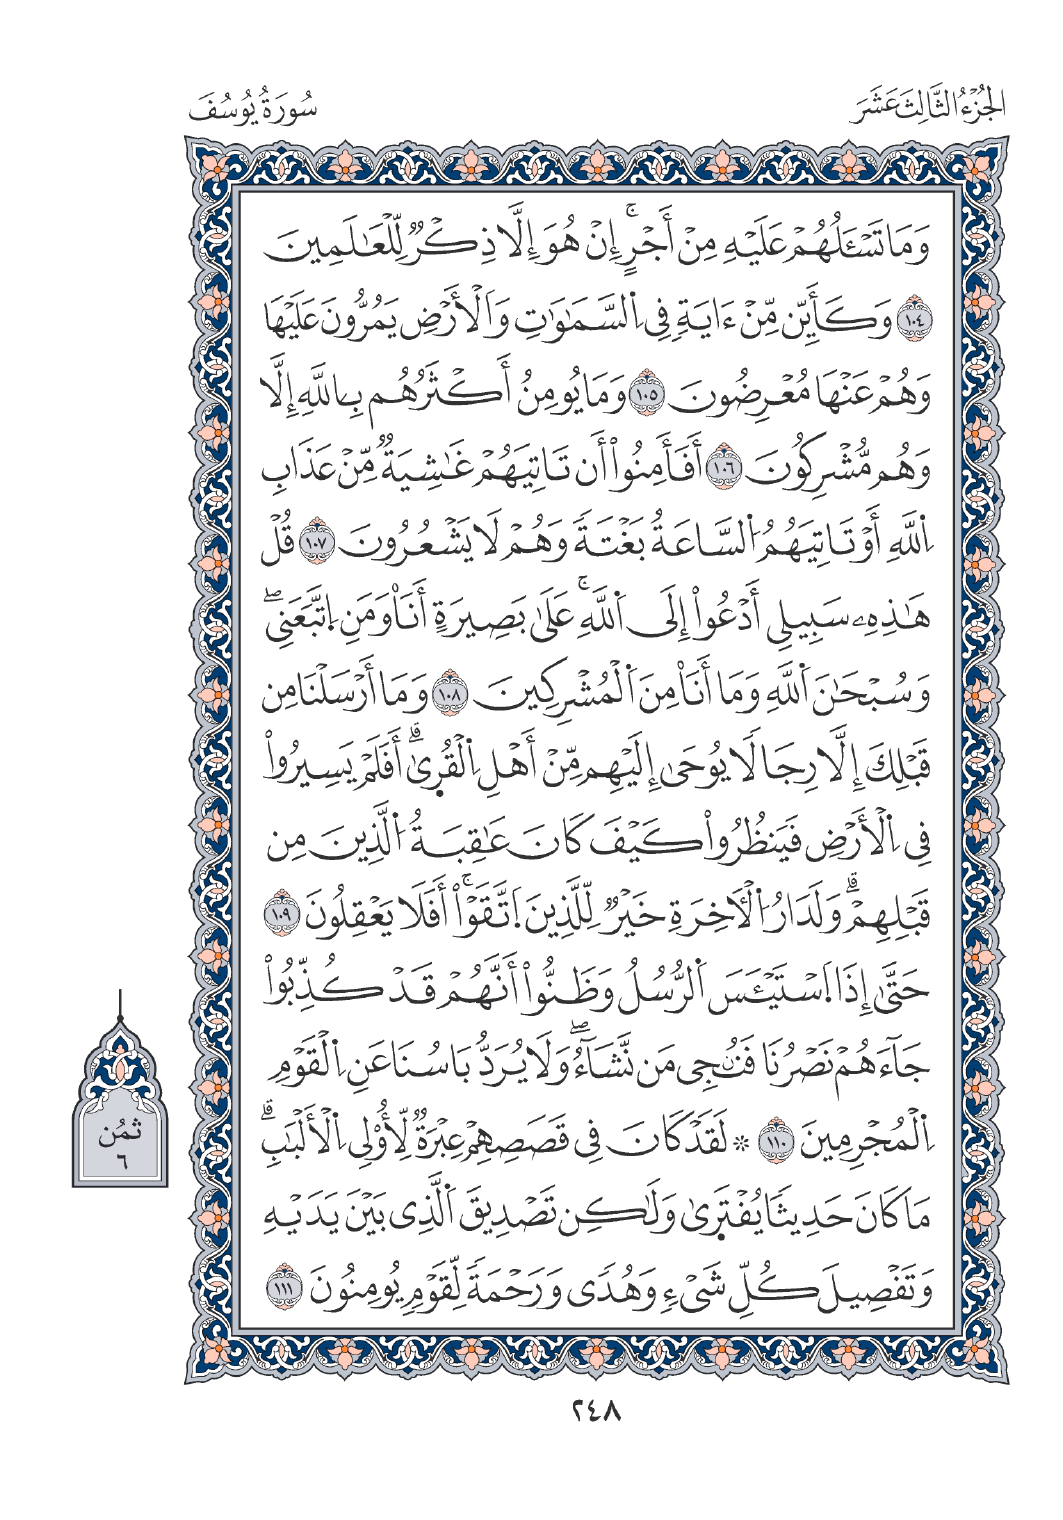 الجُزْءُ الثَّالِثَ عَشَرَ
سُورَةُ يُوسُفَ
وَمَا تَسْـَٔلُهُمْ عَلَيْهِ مِنْ أَجْرٍۚ إِنْ هُوَ إِلَّا ذِكْرٞ لِّلْعَٰلَمِينَ
١٠٤ وَكَأَيِّن مِّنْ ءَايَةٖ فِى اِ۬لسَّمَٰوَٰتِ وَالْأَرْضِ يَمُرُّونَ عَلَيْهَا
وَهُمْ عَنْهَا مُعْرِضُونَ ١٠٥ وَمَا يُومِنُ أَكْثَرُهُم بِاللَّهِ إِلَّا
وَهُم مُّشْرِكُونَ ١٠٦ أَفَأَمِنُواْ أَن تَاتِيَهُمْ غَٰشِيَةٞ مِّنْ عَذَابِ
اِ۬للَّهِ أَوْ تَاتِيَهُمُ اُ۬لسَّاعَةُ بَغْتَةٗ وَهُمْ لَا يَشْعُرُونَ ١٠٧ قُلْ
هَٰذِهِۦ سَبِيلِى أَدْعُواْ إِلَى اَ۬للَّهِۚ عَلَىٰ بَصِيرَةٍ أَنَا۠ وَمَنِ اِ۪تَّبَعَنِىۖ
وَسُبْحَٰنَ اَ۬للَّهِ وَمَا أَنَا۠ مِنَ اَ۬لْمُشْرِكِينَ ١٠٨ وَمَا أَرْسَلْنَا مِن
قَبْلِكَ إِلَّا رِجَالٗا يُوحَىٰ إِلَيْهِم مِّنْ أَهْلِ اِ۬لْقُرٜىٰۗ أَفَلَمْ يَسِيرُواْ
فِى اِ۬لْأَرْضِ فَيَنظُرُواْ كَيْفَ كَانَ عَٰقِبَةُ اُ۬لَّذِينَ مِن
قَبْلِهِمْۗ وَلَدَارُ اُ۬لْأَخِرَةِ خَيْرٞ لِّلَّذِينَ اَ۪تَّقَوْاْۚ أَفَلَا يَعْقِلُونَ ١٠٩
حَتَّىٰ إِذَا اَ۪سْتَيْـَٔسَ اَ۬لرُّسُلُ وَظَنُّواْ أَنَّهُمْ قَدْ كُذِّبُواْ
جَآءَهُمْ نَصْرُنَا فَنُۨجِى مَن نَّشَآءُۖ وَلَا يُرَدُّ بَاسُنَا عَنِ اِ۬لْقَوْمِ
اِ۬لْمُجْرِمِينَ ١١٠ * لَقَدْ كَانَ فِى قَصَصِهِمْ عِبْرَةٞ لِّأُوْلِى اِ۬لْأَلْبَٰبِۗ
مَا كَانَ حَدِيثٗا يُفْتَرٜىٰ وَلَٰكِن تَصْدِيقَ اَ۬لَّذِى بَيْنَ يَدَيْهِ
وَتَفْصِيلَ كُلِّ شَىْءٖ وَهُدٗى وَرَحْمَةٗ لِّقَوْمٖ يُومِنُونَ ١١١
ثُمُن
٦
٢٤٨